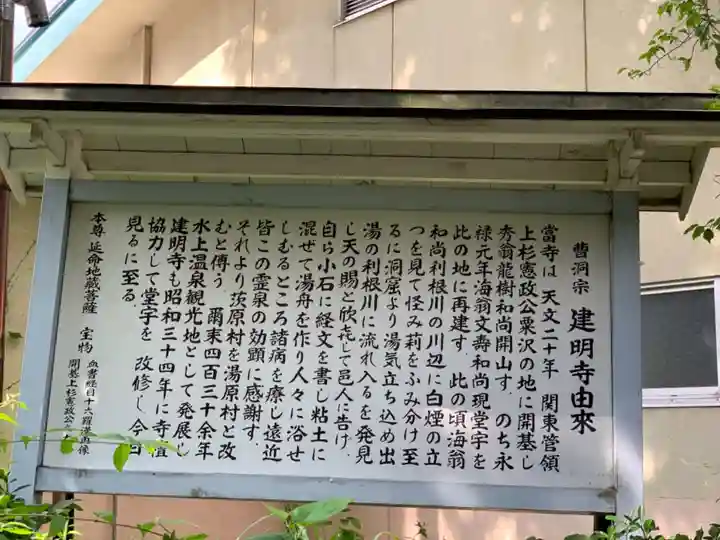 曹洞宗 建明寺由來
當寺は 天文二十年 関東管領
上杉憲政公粟沢の地に開基し
秀翁龍樹和尚開山す。のち永
禄元年海翁文壽和尚現堂宇を
此の地に再建す。此の頃海翁
和尚利根川の川辺に白煙の立
つを見て怪み莉をふみ分け至
るに洞窟より湯気立ち込め出
湯の利根川に流れ入るを発見
し天の賜と欣㐂して邑人に告げ、
自ら小石に経文を書し粘土に
混ぜて湯舟を作り人々に浴せ
しむるところ諸病を療し遠近
皆この霊泉の効顕に感謝す。
それより茨原村を湯原村と改
むと傳う 爾来四百三十余年
水上温泉観光地として発展し
建明寺も昭和三十四年に寺檀
協力して堂宇を 改修し今日
見るに至る。
本尊 延命地蔵菩薩 宝物 血書経 十六羅漢画像
開基上杉憲政公